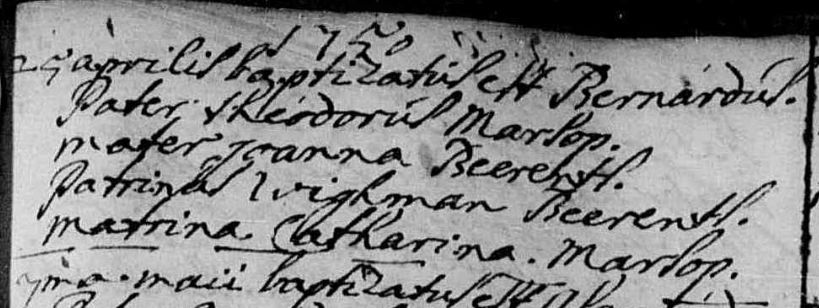 1720
25 aprilis baptizatus est Bernardus.
Pater Theodorus Marsop.
mater Joanna Beerents.
Patrinus Wighman Beerents.
matrina. Catharina. Marsop.
maii baptizatus est